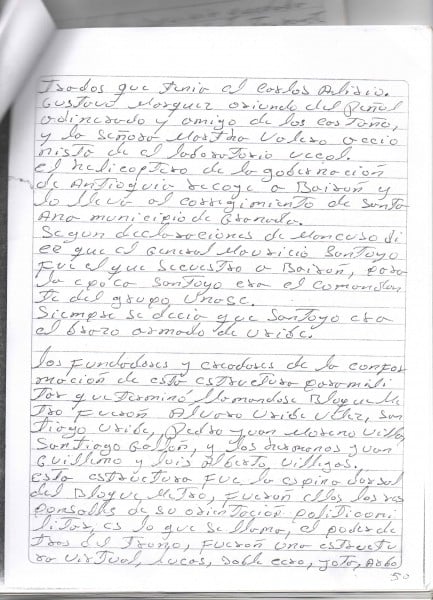 trados que tenia el Carlos Alirio.
Gustavo Marquez oriundo del Peñol
adinerado y amigo de los castaño,
y la señora Martha Valero accio
nista de el laboratorio uccol.
el helicoptero de la gobernación
de Antioquia recoge a Bairon y
lo lleva al corregimiento de Santa
Ana municipio de Granada.
Segun declaraciones de Mancuso di
ce que el General Mauricio Santoyo
fue el que secuestro a Bairon, para
la epoca Santoyo era el comandan
te del grupo Unase.
Siempre se decia que Santoyo era
el brazo armado de Uribe.
los fundadores y creadores de la confor
mación de esta estructura paramili
tar que terminó llamandose Bloque Me
tro fueron Alvaro Uribe Velez, San
tiago Uribe, Pedro Juan Moreno Villa,
Santiago Gallón, y los hermanos Juan
Guillermo y Luis Alberto Villegas.
esta estructura fue la espina dorsal
del Bloque Metro, fueron ellos los res
ponsables de su orientación politicomi
litar, es lo que se llama, el poder de
tras del trono, fueron una estructu
ra virtual, Lucas, doble cero, Jota,
50